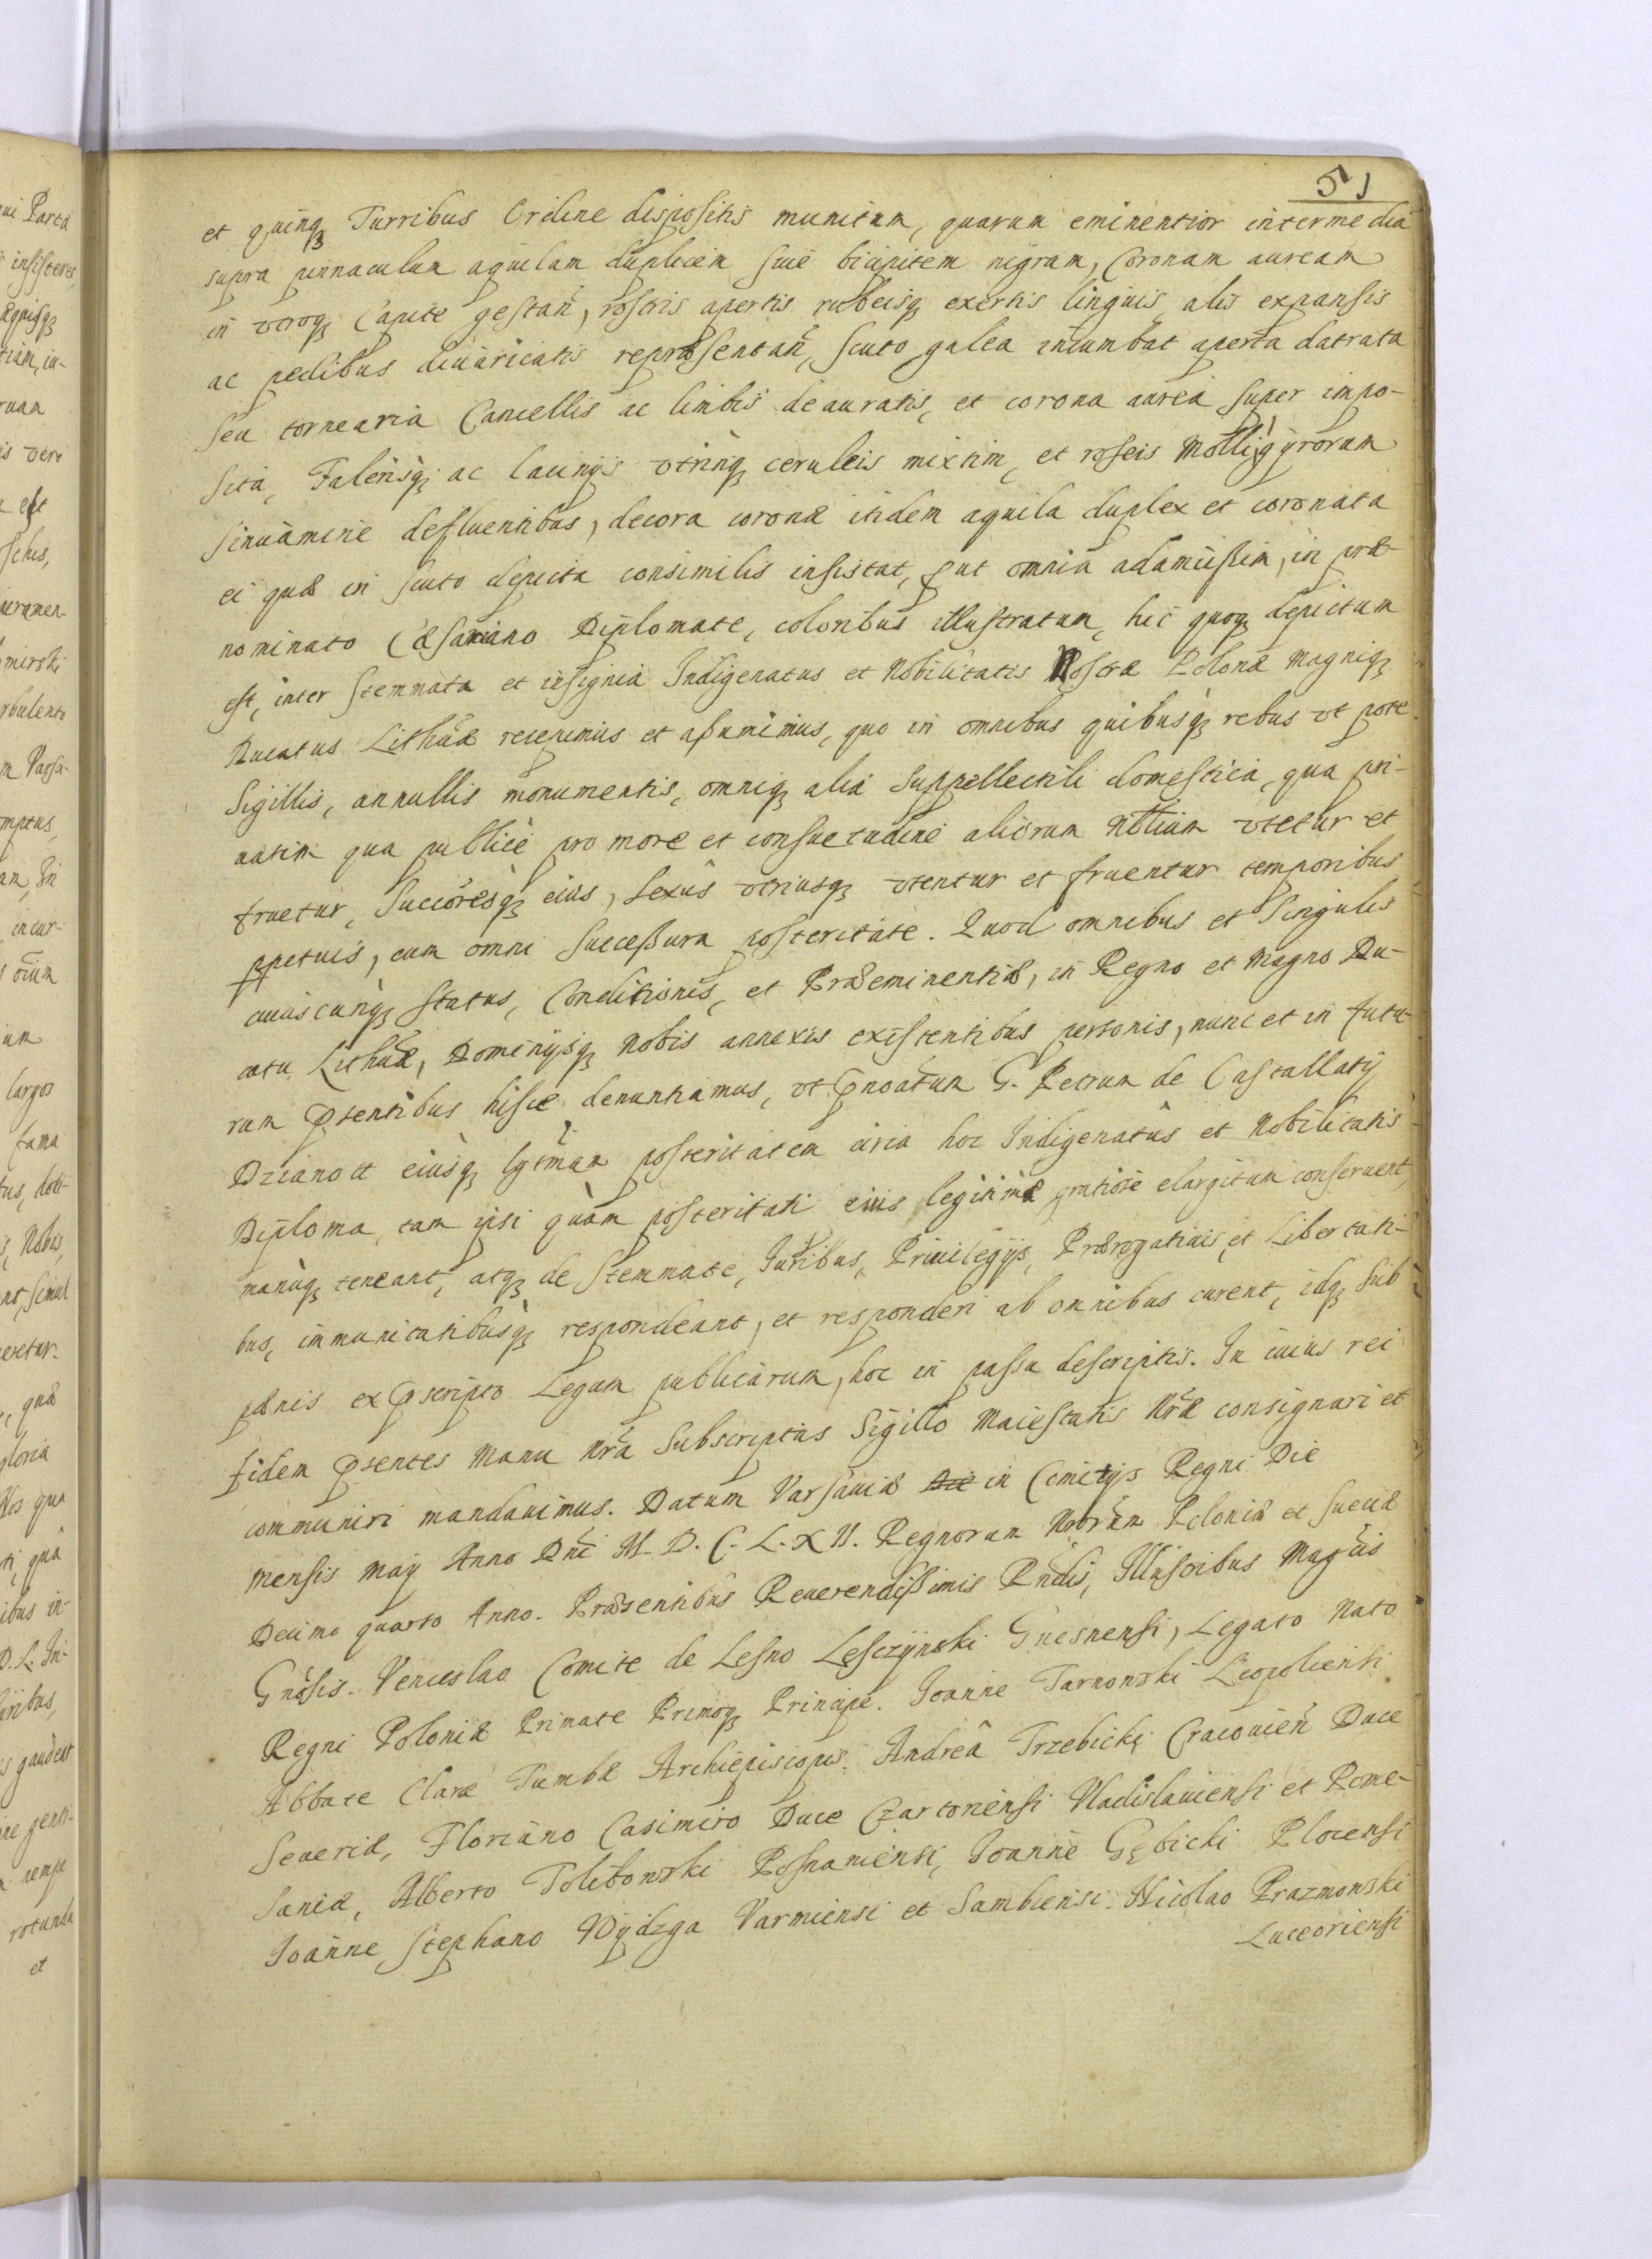 51
et quinq3 Turribus Ordine dispositis munitum, quarum eminentior intermedia
supra pinnaculum aquilam duplicem siue bicipitem nigram, Coronam auream
in vtroq3 Capite gestañ, rostris apertis rubeisq3 exertis linguis alis expansis
ac pedibus diuaricatis repræsentañ, scuto galea incumbat aperta clatrata
seu tornearia Cancellis ac limbis deauratis, et corona aurea super impo-
sita, Falerisq3 ac lacinijs vtrinq3 ceruleis mixtim, et roseis Molli gÿrorum
sinuamine defluentibus, decora coronæ itidem aquila duplex et coronata
ei quæ in scuto depicta consimilis insistat, ꝓut omnia adamußim, in præ-
nominato Cæsariano Diplomate, coloribus illustratum, hic quoq3 depictum
est, inter stemmata et insignia Indigenatus et Nobilitatis Nostræ Polonæ Magniq3
Ducatus Lithũæ recepimus et aßumimus, quo in omnibus quibusq3 rebus vt pote
Sigillis, annullis monumentis, omniq3 alia Suppellectili domestica, qua pri-
uatim qua publicè pro more et consuetudine aliorum Nbilium vtetur et
fruetur, Succoresq3 eius, Sexûs vtriusq3 vtentur et fruentur temporibus
ꝑpetuis, cum omni succeßura posteritate. Quod omnibus et Singulis
cuiuscunq3 status, Conditionis, et Præeminentiæ, in Regno et Magno Du-
catu Lithũæ, Dominijsq3 Nobis annexis existentibus personis, nunc et in futu-
rum p̃sentibus hisce denuntiamus, vt p̃noatum G. Petrum de Castallatÿ
Dzianott eiusq3 lgtm̃am posteritatem circa hoc Indigenatûs et Nobilitatis
Diploma, tam ipsi quàm posteritati eius legitimæ gratiose elargitum conseruent,
manuq3 teneant, atq3 de Stemmate, Iuribus, Priuilegijs, Prærogatiuis, et Libertati-
bus, immunitatibusq3 respondeant, et responderi ab omnibus curent, idq3 sub
pænis ex p̃scripto Legum publicarum, hoc in passu descriptis. In cuius rei
fidem p̃sentes Manu Nr̃a Subscriptas Sigillo Maiestatis Nr̃æ consignari et
communiri mandauimus. Datum Varsauiæ Die in Comitijs Regni Die
Mensis Maÿ Anno Dnĩ M.D.C.L.XII. Regnorum Nrorũm Poloniæ et Sueciæ
Decimo quarto Anno. Præsentibus Reuerendißimis Rndis, Illustribus Magcis
Gnõsis. Venceslao Comite de Lesno Lesczÿnski Gnesnensi, Legato Nato
Regni Poloniæ Primate Primoq3 Principe. Joanne Tarnowski Leopoliensi
Abbate Claræ Tumbæ Archiepiscopis. Andreâ Trzebicki Cracouieñ Duce
Seueriæ, Floriano Casimiro Duce Czartoriensi Vladislauiensi et Pome-
raniæ, Alberto Tolibowski Posnaniensi, Joanne Gębicki Plocensi
Joanne Stephano Wÿdzga Varmiensi et Sambiensi. Nicolao Prazmowski
Luceoriensi